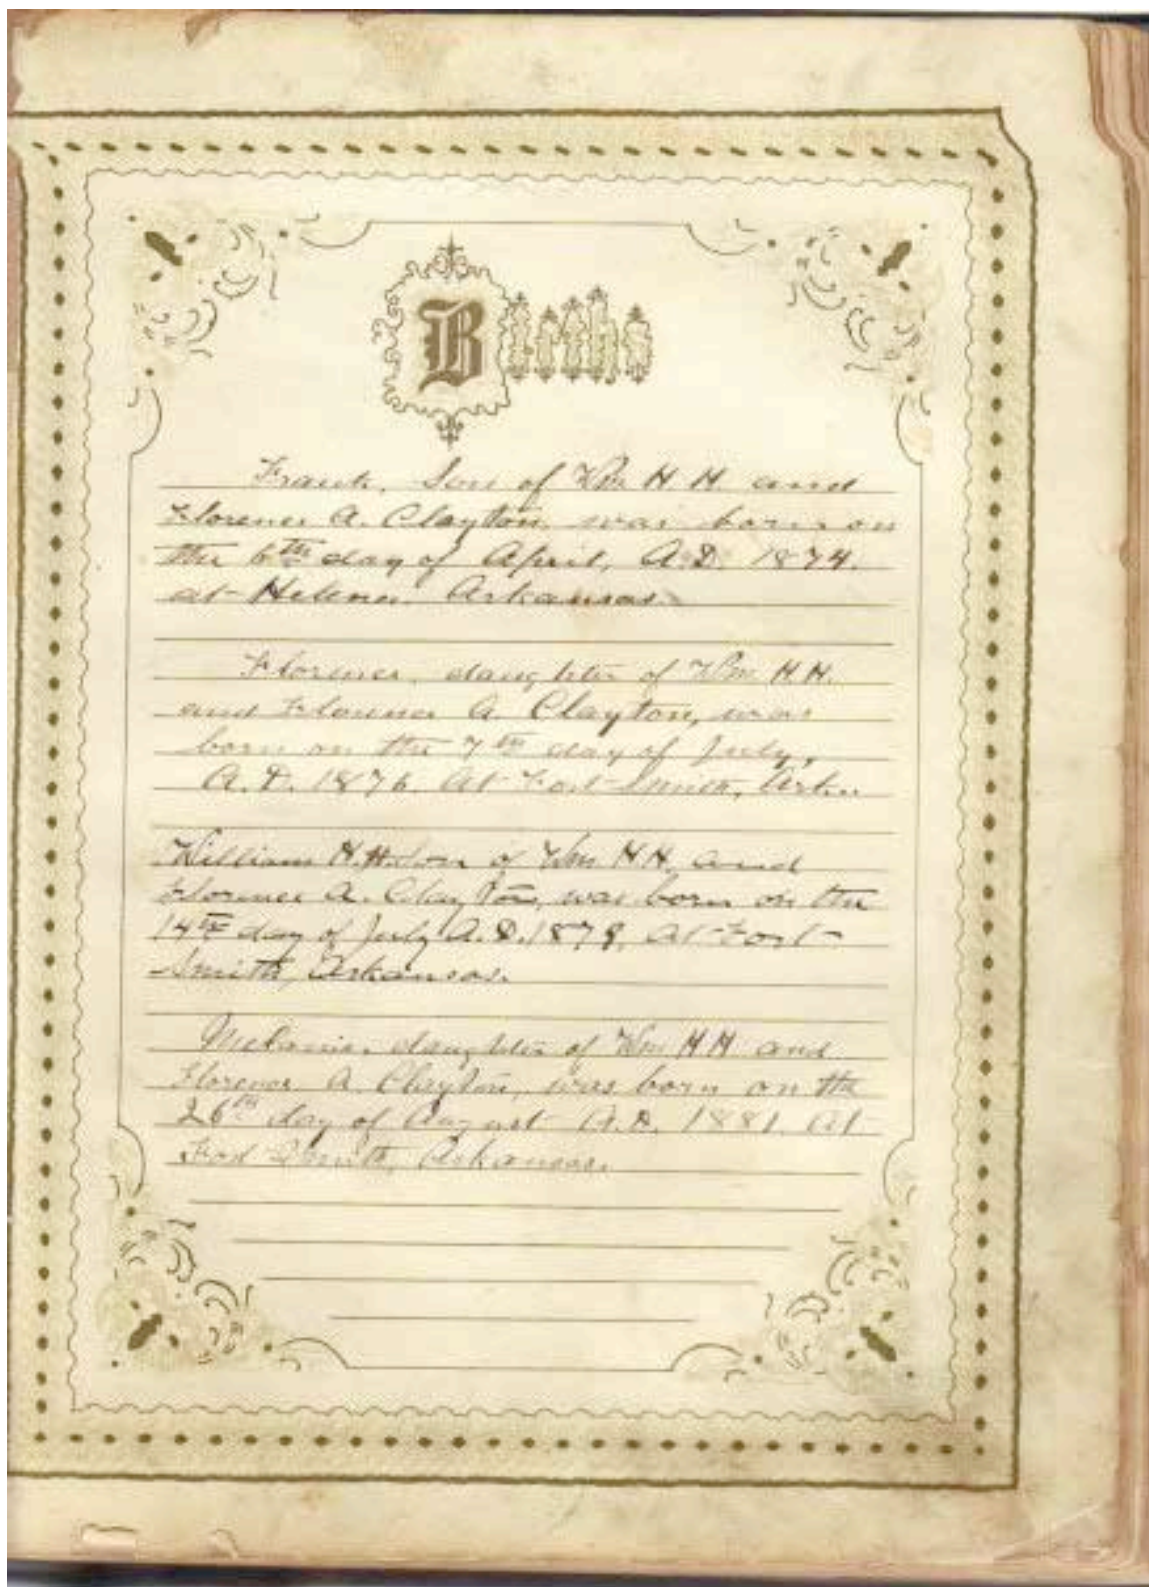 Births
Frank, Son of Wm H H and
Florence A. Clayton, was born on
the 6th day of April, A.D. 1874.
at Helena Arkansas.
Florence, daughter of Wm H H.
and Florence A. Clayton, was
born on the 7th day of July,
A.D. 1876. At Fort Smith, Ark..
William H.H. son of Wm H H. and
Florence A. Clayton, was born on the
14th day of July A.D. 1878, At Fort
Smith, Arkansas.
Melanie, daughter of Wm H H and
Florence A. Clayton, was born on the
26th day of August A.D. 1881. At
Fort Smith, Arkansas.